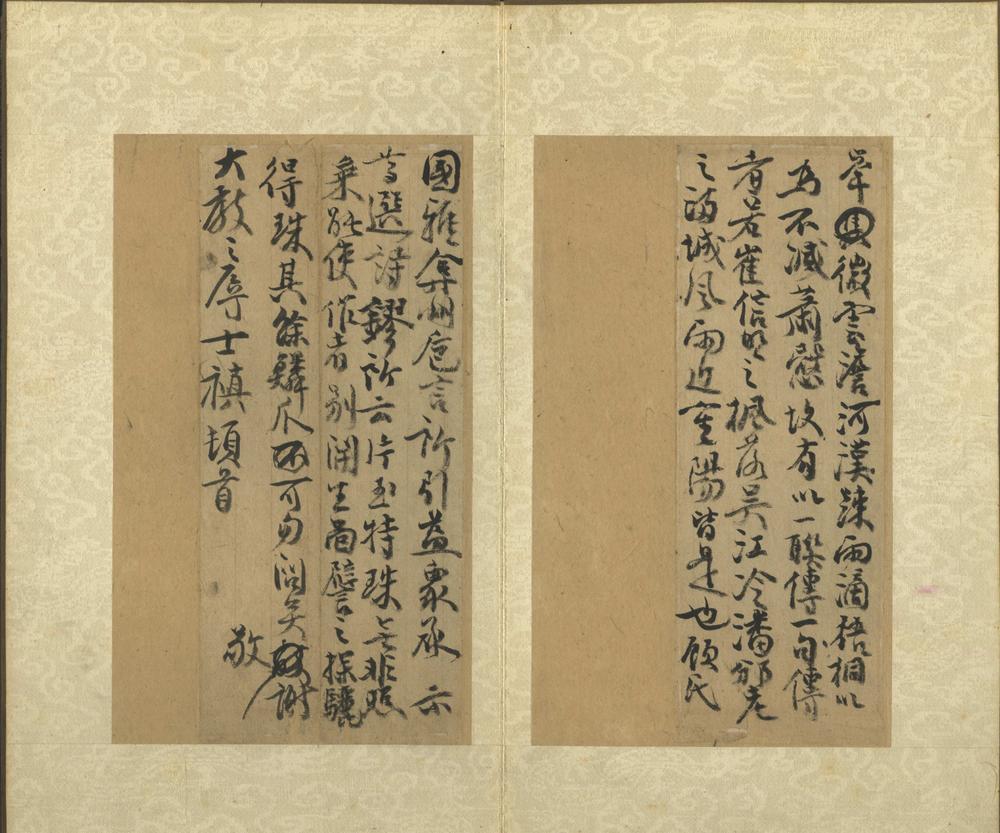 舉其微雲澹河漢疎雨滴梧桐以
為不減蕭愨故有以一聯傳一句傳
者若崔信明之楓落吳江冷潘邠老
之滿城風雨近重陽皆是也顧氏
國雅弇州巵言所引益衆承 示
尊選詩鏐所云片玉特珠無非照
乘能使作者別開生面譬之探驪
得珠其餘鱗爪可勿問矣謝
敬
大教之辱士禛頓首